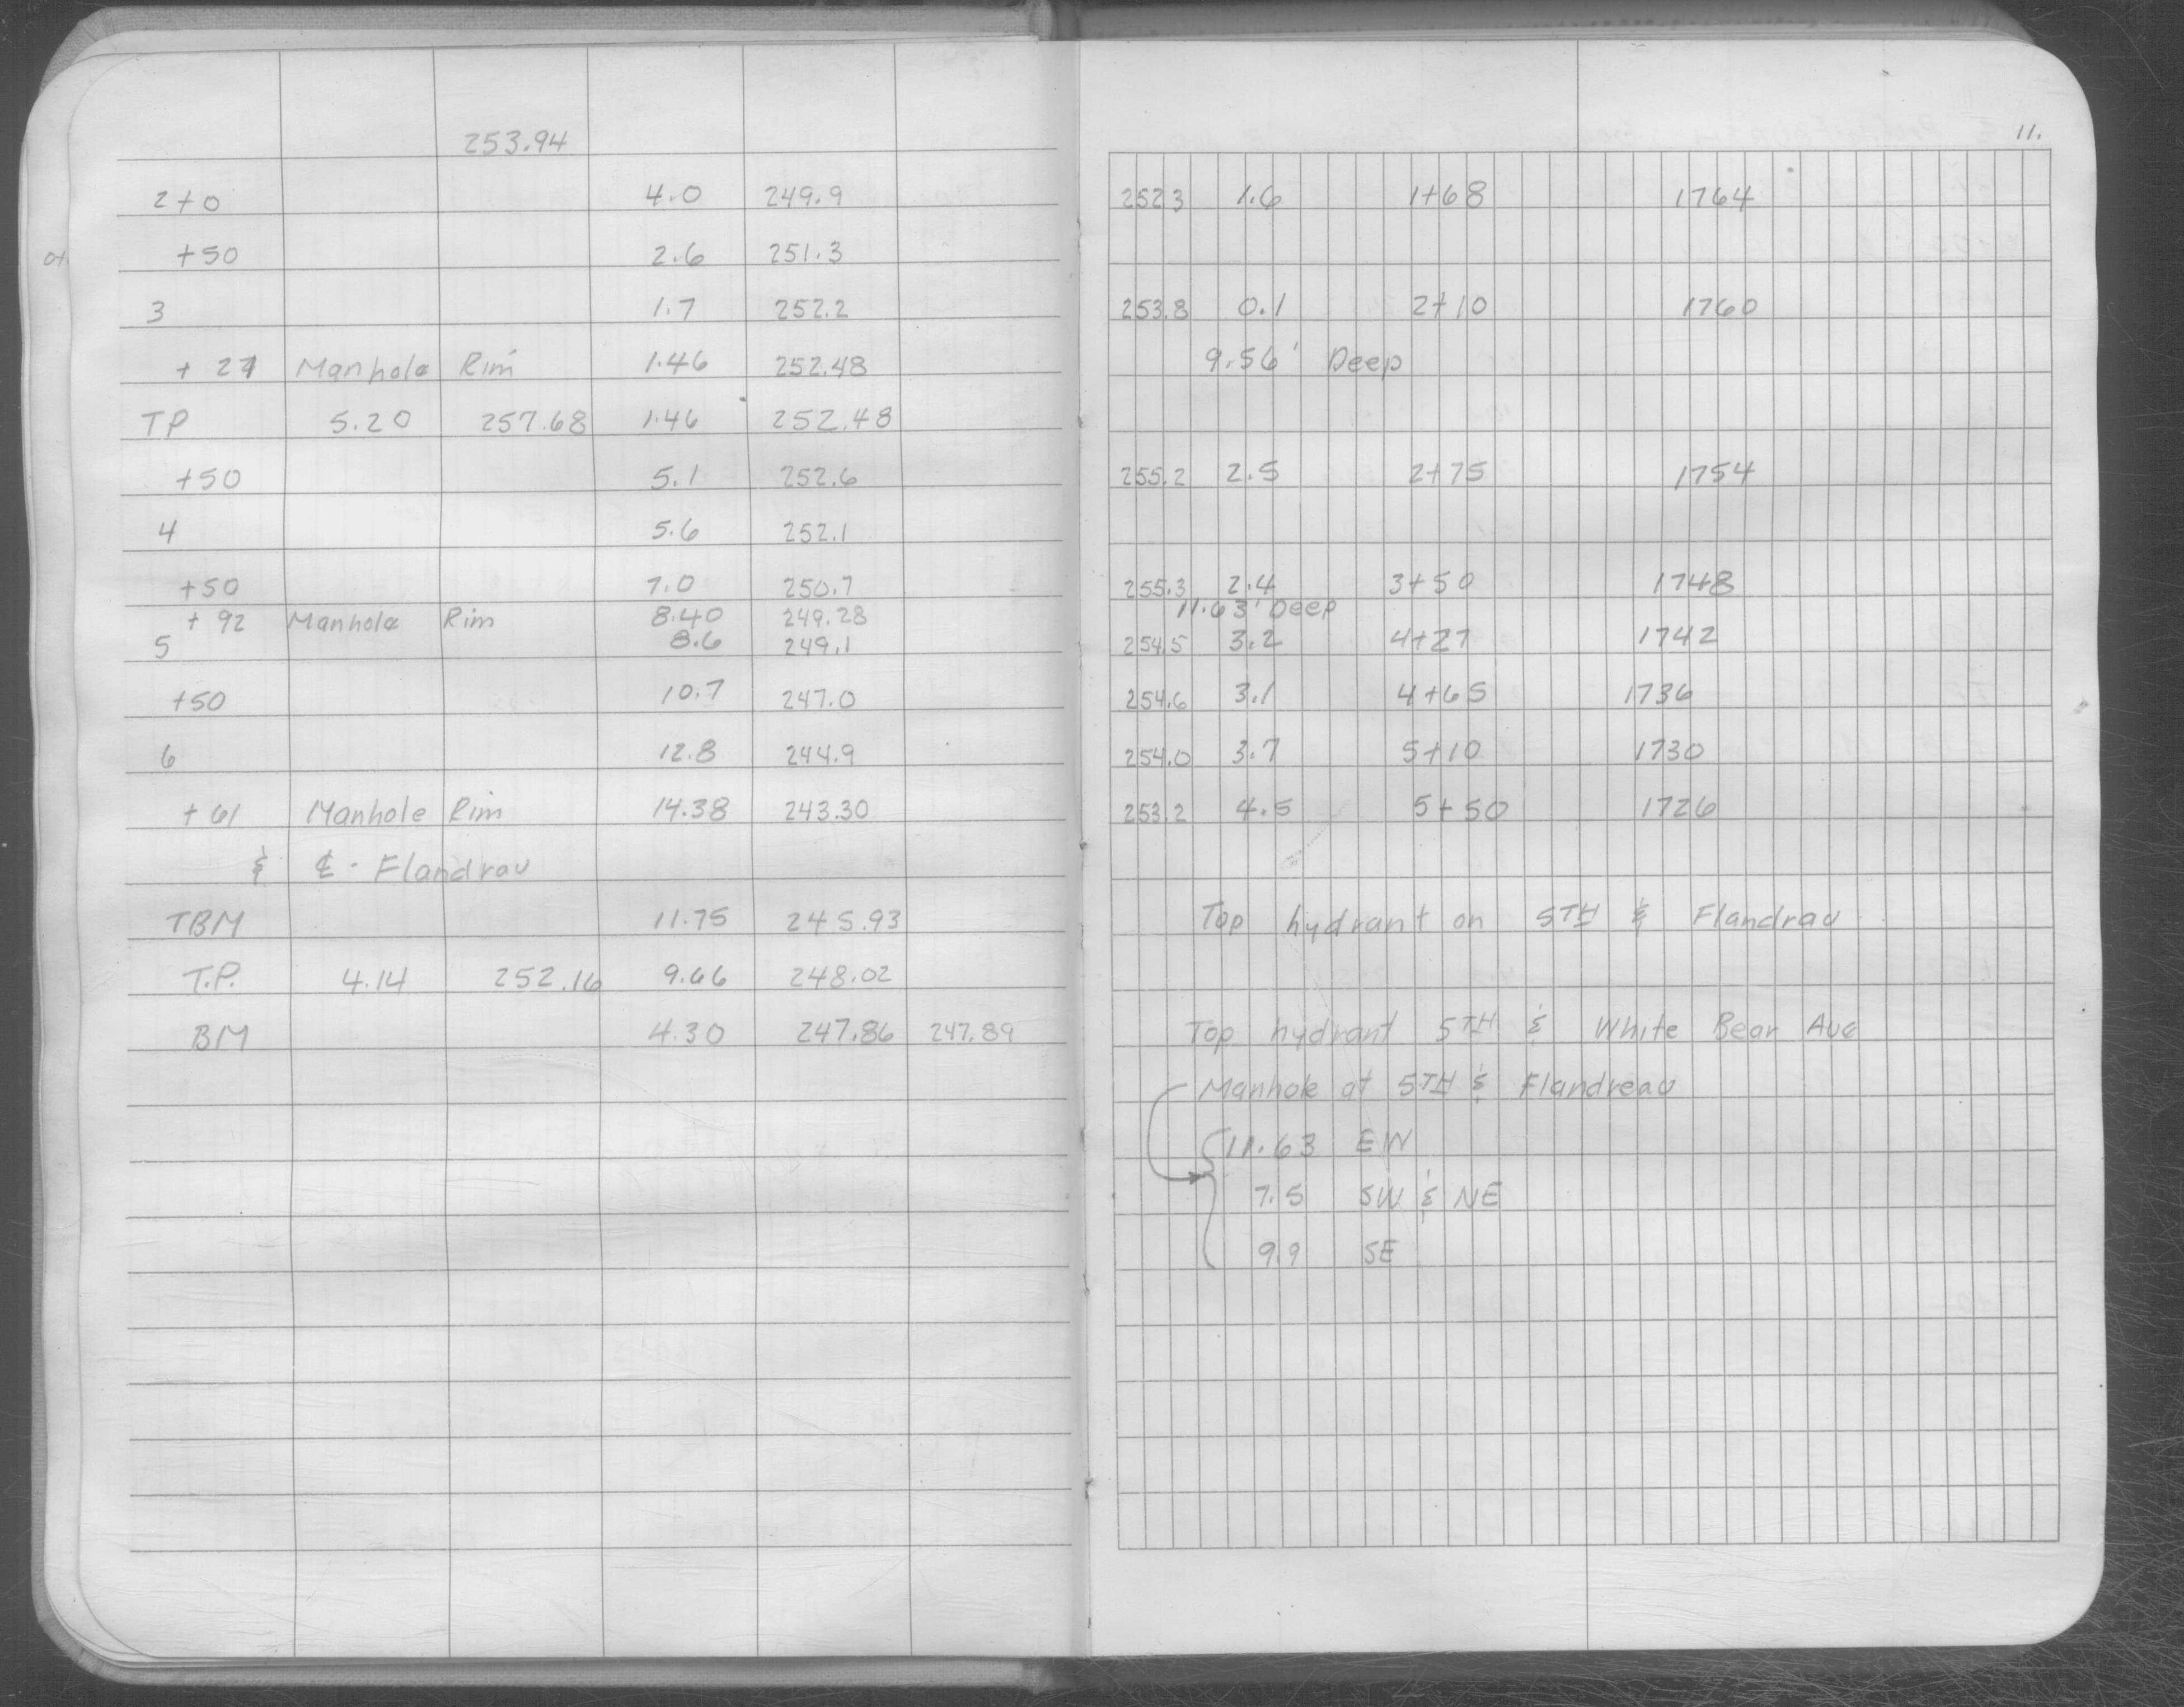 253.94
2+0 4.0 249.9
+50 2.6 251.3
3 1.7 252.2
+ 27 Manhole Rim 1.46 252.48
TP 5.20 257.68 1.46 252.48
+50 5.1 252.6
4 5.6 252.1
+50 7.0 250.7
+ 92 Manhole Rim 8.40 249.28
5 8.6 249.1
+50 10.7 247.0
6 12.8 244.9
+ 61 Manhole Rim 14.38 243.30
& ℄ - Flandrau
TBM 11.75 245.93
T.P. 4.14 252.16 9.66 248.02
BM 4.30 247.86 247.89
11.
252.3 1.6 1+68 1764
253.8 0.1 2+10 1760
9.56' Deep
255.2 2.5 2+75 1754
255.3 2.4 3+50 1748
11.63' Deep
254.5 3.2 4+27 1742
254.6 3.1 4+65 1736
254.0 3.7 5+10 1730
253.2 4.5 5+50 1726
Top hydrant on 5TH & Flandrau
Top hydrant 5TH & White Bear Ave
Manhole at 5TH & Flandreau
11.63 EW
7.5 SW & NE
9.9 SE